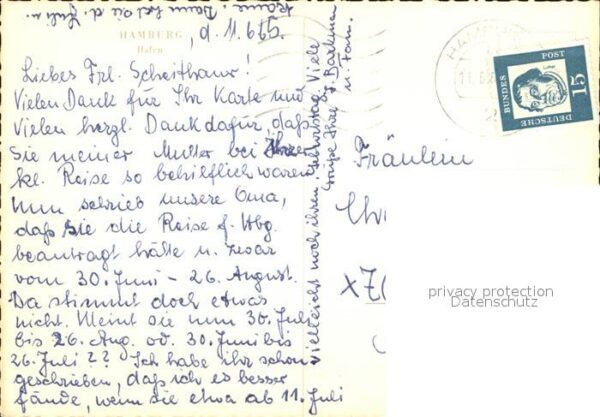 HAMBURG
Hafen
d. 11.6.62.
Liebes Frl. Scheithauer!
Vielen Dank für Ihr Karte und
vielen herzl. Dank dafür, daß
Sie meiner Mutter bei Ihrer
kl. Reise so behilflich waren.
Nun schrieb unsere Oma,
daß sie die Reise f. Hbg.
beantragt hätte u. zwar
vom 30. Juni - 26. August.
Da stimmt doch etwas
nicht. Meint sie nun 30. Juli
bis 26. Aug. od. 30. Juni bis
26. Juli?? Ich habe ihr schon
geschrieben, daß ich es besser
fände, wenn sie etwa ab 11. Juli
käme. Dann hat sie d. Juli
vielleicht noch ihren Geburtstag. Viele
Grüße Ihre
u. Fam.
HAMBURG
DEUTSCHE
BUNDES
POST
15
Fräulein
X7
privacy protection
Datenschutz